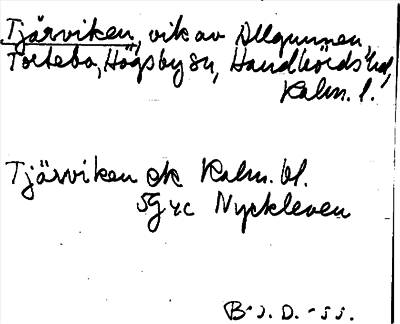 Tjärviken, vik av Allgunnen,
Tortebo, Högsby sn, Handbörds hd,
Kalm. l.
Tjärviken ek Kalm. bl.
5G 4c Nyckleven
B-s. D. -ss.